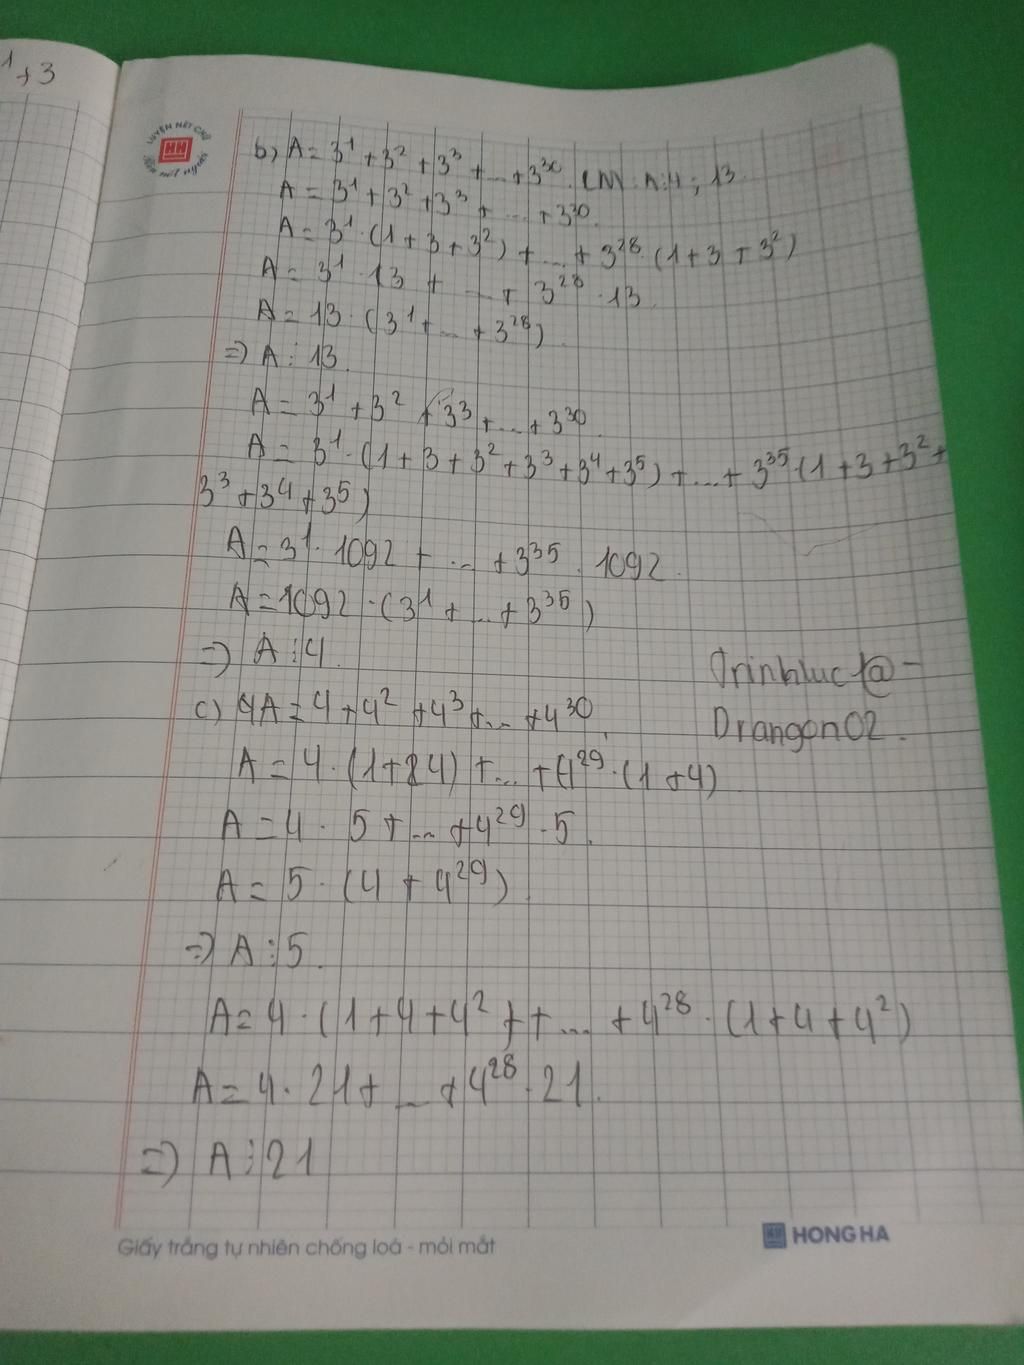 1+3
LUYỆN NÉT CHỮ
HH
Rèn nết người
b) A = 3¹ + 3² + 3³ + ... + 3³⁰. CM A⋮4; 13.
A = 3¹ + 3² + 3³ + ... + 3³⁰.
A = 3¹ · (1 + 3 + 3²) + ... + 3²⁸ · (1 + 3 + 3²)
A = 3¹ · 13 + ... + 3²⁸ · 13.
A = 13 · (3¹ + ... + 3²⁸)
=> A ⋮ 13.
A = 3¹ + 3² + 3³ + ... + 3³⁰.
A = 3¹ · (1 + 3 + 3² + 3³ + 3⁴ + 3⁵) + ... + 3³⁵ · (1 + 3 + 3² +
3³ + 3⁴ + 3⁵)
A = 3¹ · 1092 + ... + 3³⁵ . 1092.
A = 1092 · (3¹ + ... + 3³⁵)
=> A ⋮ 4.
Trinhluc t@-
c) 4A = 4 + 4² + 4³ + ... + 4³⁰.
Drangon02.
A = 4 · (1 + 4) + ... + 4²⁹ · (1 + 4)
A = 4 · 5 + ... + 4²⁹ · 5.
A = 5 · (4 + 4²⁹)
=> A ⋮ 5.
A = 4 · (1 + 4 + 4²) + ... + 4²⁸ · (1 + 4 + 4²)
A = 4 · 21 + ... + 4²⁸ · 21.
=> A ⋮ 21
Giấy trắng tự nhiên chống loá - mỏi mắt
HH HONG HA